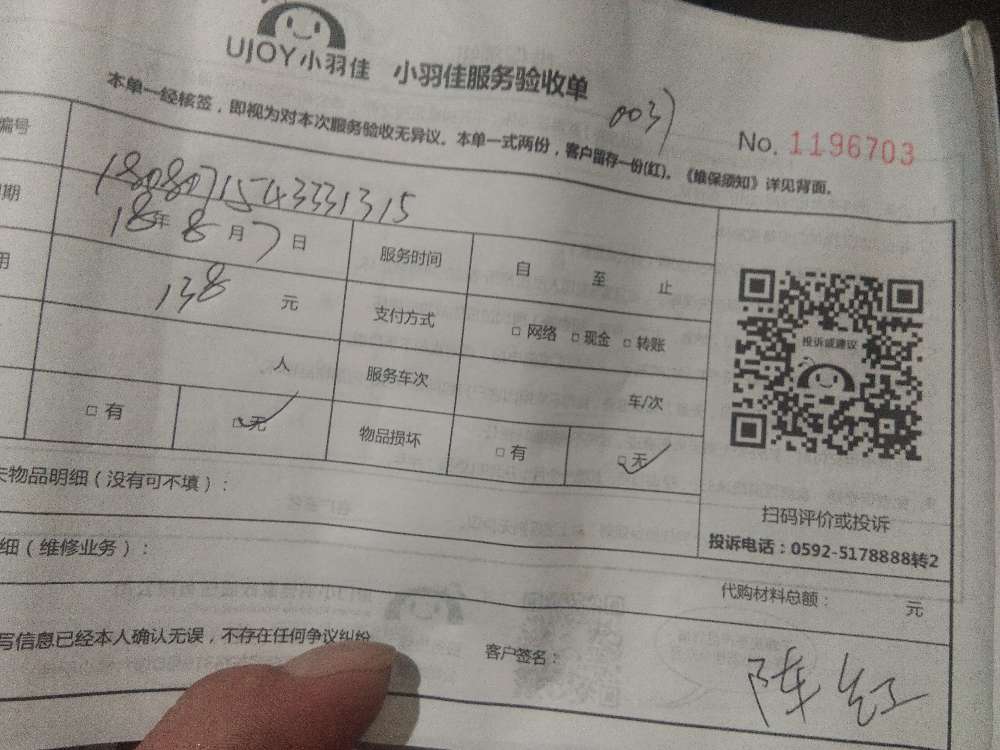 UJOY小羽佳 小羽佳服务验收单
003)
No. 1196703
本单一经核签，即视为对本次服务验收无异议。本单一式两份，客户留存一份(红)。《维保须知》详见背面。
编号 1808071543331315
期 18年8月7日 服务时间 自 至 止
用 138 元 支付方式 □网络 □现金 □转账
人 服务车次 车/次
□有 □无 物品损坏 □有 □无
投诉或建议
扫码评价或投诉
投诉电话：0592-5178888转2
失物品明细（没有可不填）：
细（维修业务）：
代购材料总额： 元
写信息已经本人确认无误，不存在任何争议纠纷
客户签名：